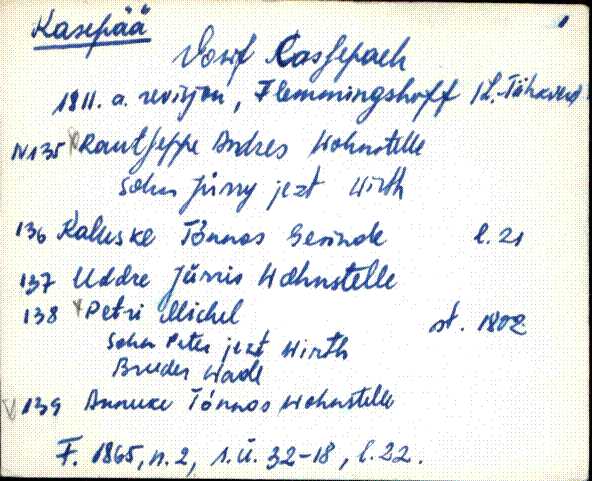 Kasepää
1
Dorf Cassepaeh
1811. a. revisjon, Flemmingshoff /L.-Tähkvere/
N135 x Rautseppe Andres Wohnstelle
Sohn Jürry jezt Wirth
136 Kaluske Tönnos Gesinde l. 21
137 Uddre Jürris Wohnstelle
138 x Petri Michel st. 1802
Sohn Peter jezt Wirth
Bruder Wade
V 139 Annuke Tönnos Wohnstelle
F. 1865, n. 2, s.ü. 32-18, l. 22.